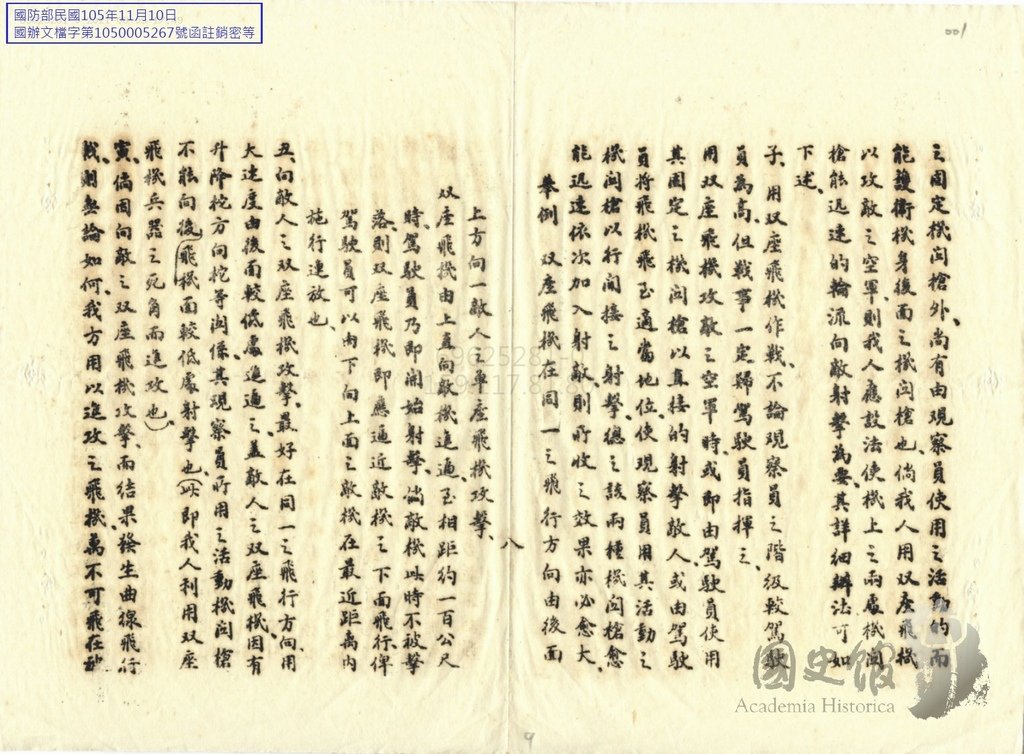 國防部民國105年11月10日
國辦文檔字第1050005267號函註銷密等
001
之固定機関槍外、尚有由現察員使用之活動的而
能護衛機身後面之機関槍也、倘我人用双座飛機
以攻敵之空軍、則我人應設法使機上之両處機関
槍能迅速的輪流向敵射擊為要、其詳細辦法可如
下述、
子、用双座飛機作戰、不論現察員之階級較駕駛
員為高、但戰事一定歸駕駛員指揮之、
用双座飛機攻敵之空軍時、或即由駕駛員使用
其固定之機関槍以直接的射擊敵人、或由駕駛
員將飛機飛至適當地位、使現察員用其活動之
機関槍以行間接之射擊、總之該両種機関槍愈
能迅速依次加入射敵、則所收之效果亦必愈大、
舉例 双座飛機在同一之飛行方向由後面
八
上方向一敵人之單座飛機攻擊、
双座飛機由上直向敵機進逼、至相距約一百公尺
時、駕駛員乃即開始射擊、倘敵機此時不被擊
落、則双座飛機即應逼近敵機之下面飛行俾
駕駛員可以由下向上面之敵機在最近距离内
施行連放也、
丑、向敵人之双座飛機攻擊、最好在同一之飛行方向、用
大速度由後面較低處進逼之、蓋敵人之双座飛機、因有
升降柁方向柁等関係、其現察員所用之活動機関槍
不能向後(飛機面較低處射擊也、(此即我人利用双座
飛機兵器之死角而進攻也)、
寅、倘因向敵之双座飛機攻擊、而結果發生曲線飛行
戰、則無論如何、我方用以進攻之飛機、萬不可飛在被
國史館
Academia Historica
9